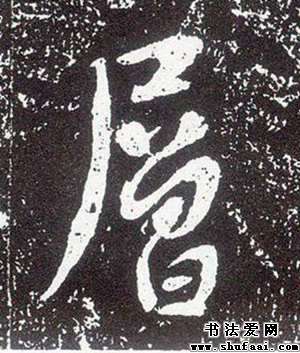 層
书法爱网
www.shufaai.com